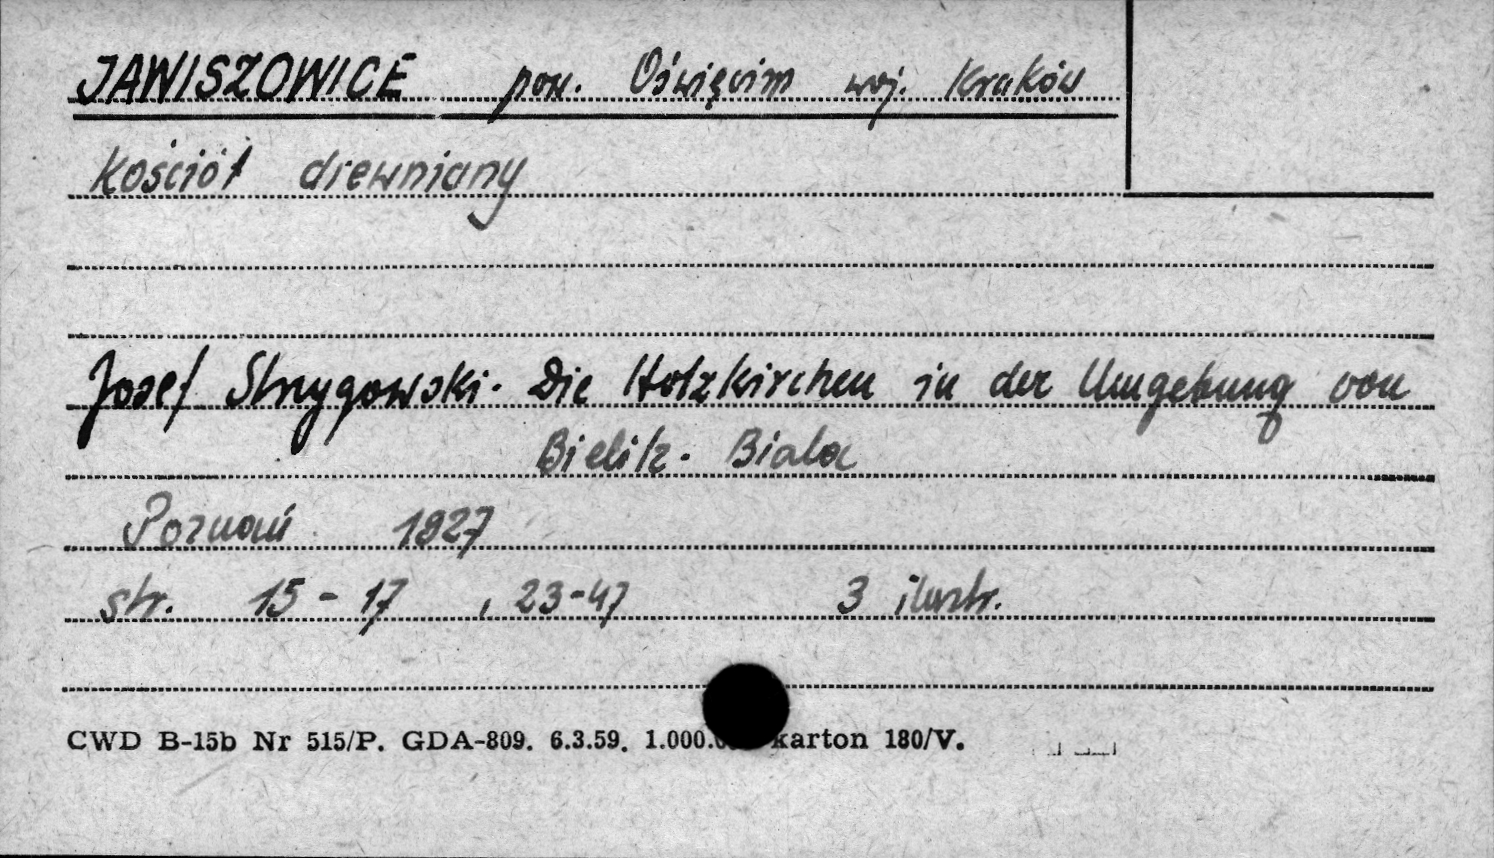 JAWISZOWICE pow. Oświęcim woj. Kraków
Kościół drewniany
Josef Strzygowski. Die Holzkirchen in der Umgebung von
Bielitz-Biala
Poznań 1927
str. 15-17, 23-47 3 ilustr.
CWD B-15b Nr 515/P. GDA-809. 6.3.59. karton 180/V.